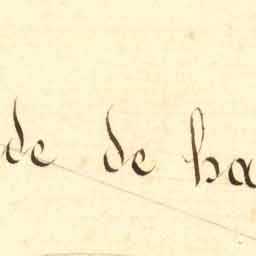 de de ha